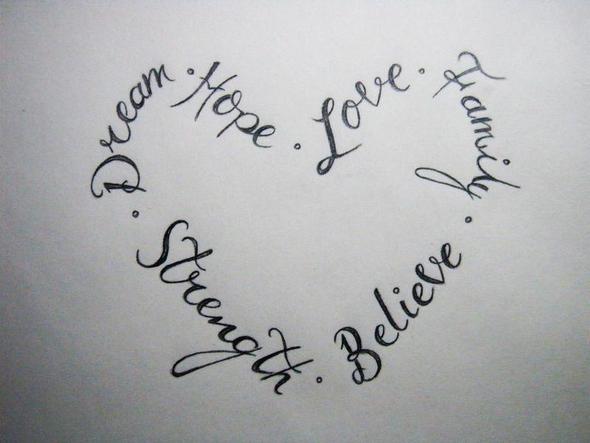 Dream
Hope
Love
Family
Believe
Strength